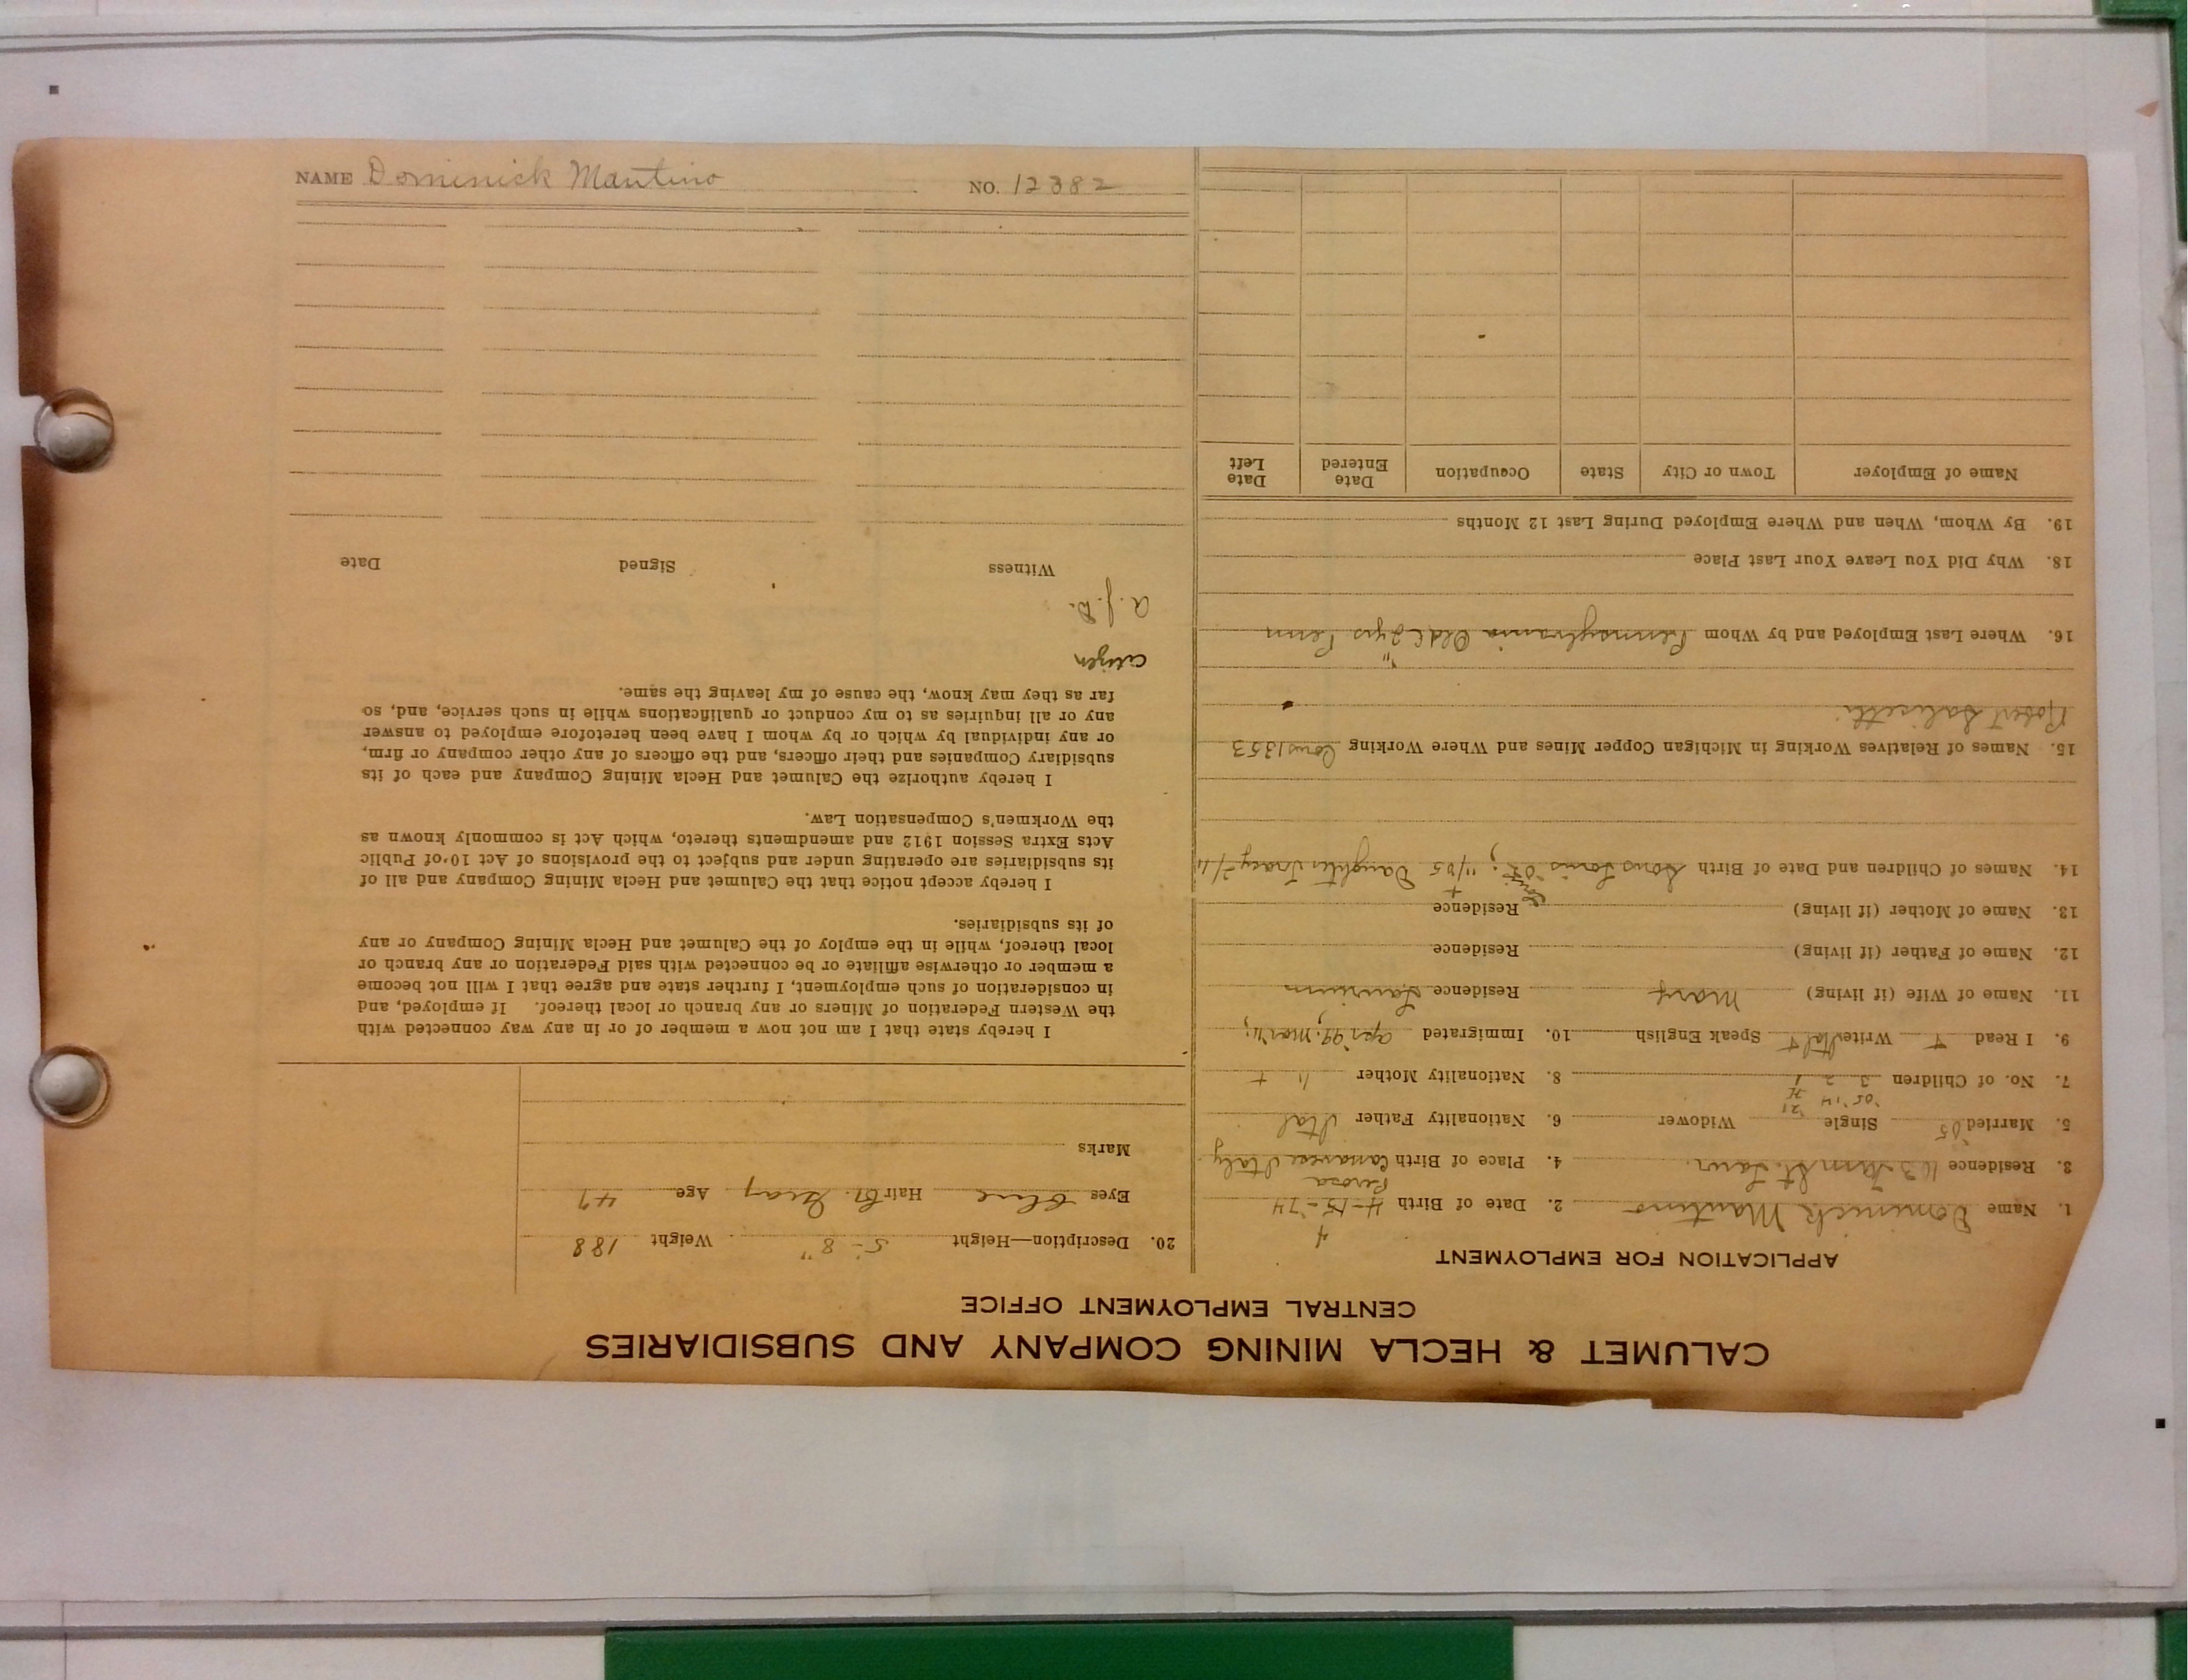 CALUMET & HECLA MINING COMPANY AND SUBSIDIARIES
CENTRAL EMPLOYMENT OFFICE
APPLICATION FOR EMPLOYMENT
1. Name Dominick Mautino 2. Date of Birth 4-15-74
3. Residence 163 St. Laur. 4. Place of Birth Canavese Italy
Perosa
5. Married '05 Single Widower 6. Nationality Father Ital
'05 '14 '21
7. No. of Children 3 2 1 8. Nationality Mother "
9. I Read Write Ital Speak English 10. Immigrated Apr '99; Mar '11;
11. Name of Wife (if living) Mary Residence Laurium
12. Name of Father (if living) Residence
13. Name of Mother (if living) Residence
14. Names of Children and Date of Birth Sons Louis '05 Daughter Tracy
15. Names of Relatives Working in Michigan Copper Mines and Where Working Cous 1353
Robert
16. Where Last Employed and by Whom Pennsylvania Old C 2 yrs Penn
18. Why Did You Leave Your Last Place
19. By Whom, When and Where Employed During Last 12 Months
Name of Employer Town or City State Occupation Date Entered Date Left
20. Description—Height 5-8" Weight 188
Eyes blue Hair Br. Gray Age 47
Marks
I hereby state that I am not now a member of or in any way connected with
the Western Federation of Miners or any branch or local thereof. If employed, and
in consideration of such employment, I further state and agree that I will not become
a member or otherwise affiliate or be connected with said Federation or any branch or
local thereof, while in the employ of the Calumet and Hecla Mining Company or any
of its subsidiaries.
I hereby accept notice that the Calumet and Hecla Mining Company and all of
its subsidiaries are operating under and subject to the provisions of Act 10 of Public
Acts Extra Session 1912 and amendments thereto, which Act is commonly known as
the Workmen's Compensation Law.
I hereby authorize the Calumet and Hecla Mining Company and each of its
subsidiary Companies and their officers, and the officers of any other company or firm,
or any individual by which or by whom I have been heretofore employed to answer
any or all inquiries as to my conduct or qualifications while in such service, and, so
far as they may know, the cause of my leaving the same.
citizen
Witness Signed Date
NAME Dominick Mautino NO. 12382